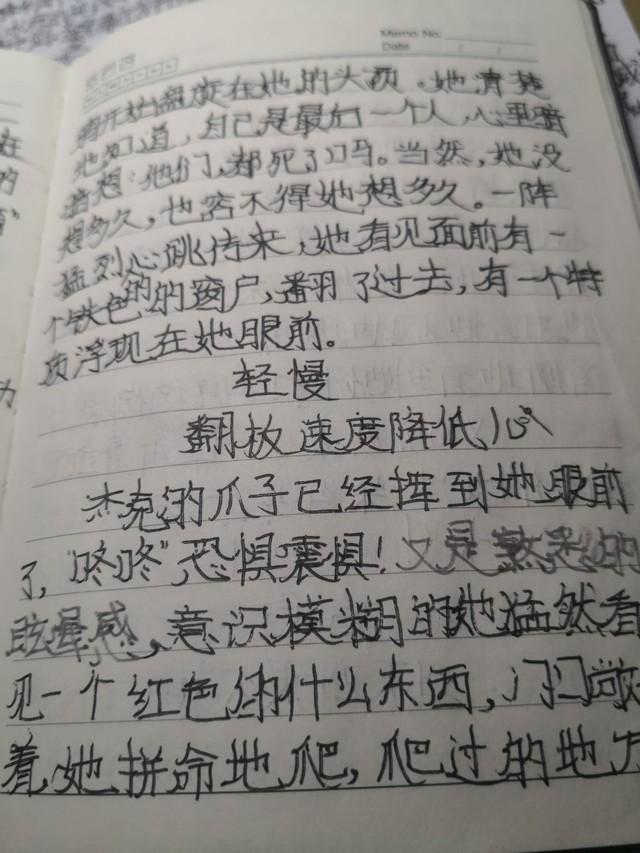 Memo No.
Date / /
在她的头顶。她清楚
地知道，自己是最后一个人，心里暗
暗想：他们，都死了吗。当然，她没
想多久，也容不得她想多久。一阵
猛烈心跳传来，她看见面前有一
个铁色的的窗户，翻了过去，有一个特
质浮现在她眼前。
轻慢
翻板速度降低10%
杰克的爪子已经挥到她眼前
了，“咚咚”，恐惧震惧！又是熟悉的
眩晕感，意识模糊的她猛然看
见一个红色的什么东西，门口敞
着，她拼命地爬，爬过的地方
在
的
为